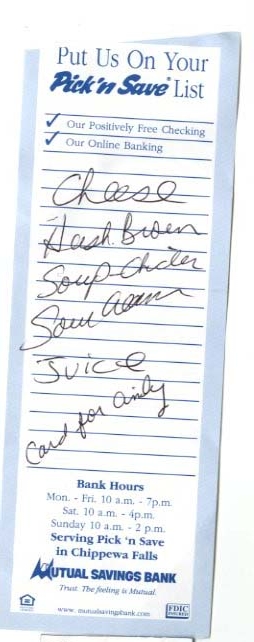 Put Us On Your
Pick 'n Save® List
✓ Our Positively Free Checking
✓ Our Online Banking
Cheese
Hash Brown
Soup-Chicken
Sour Cream
Juice
Card for
Bank Hours
Mon. - Fri. 10 a.m. - 7p.m.
Sat. 10 a.m. - 4p.m.
Sunday 10 a.m. - 2 p.m.
Serving Pick 'n Save
in Chippewa Falls
MUTUAL SAVINGS BANK
Trust. The feeling is Mutual.
www.mutualsavingsbank.com
FDIC
INSURED